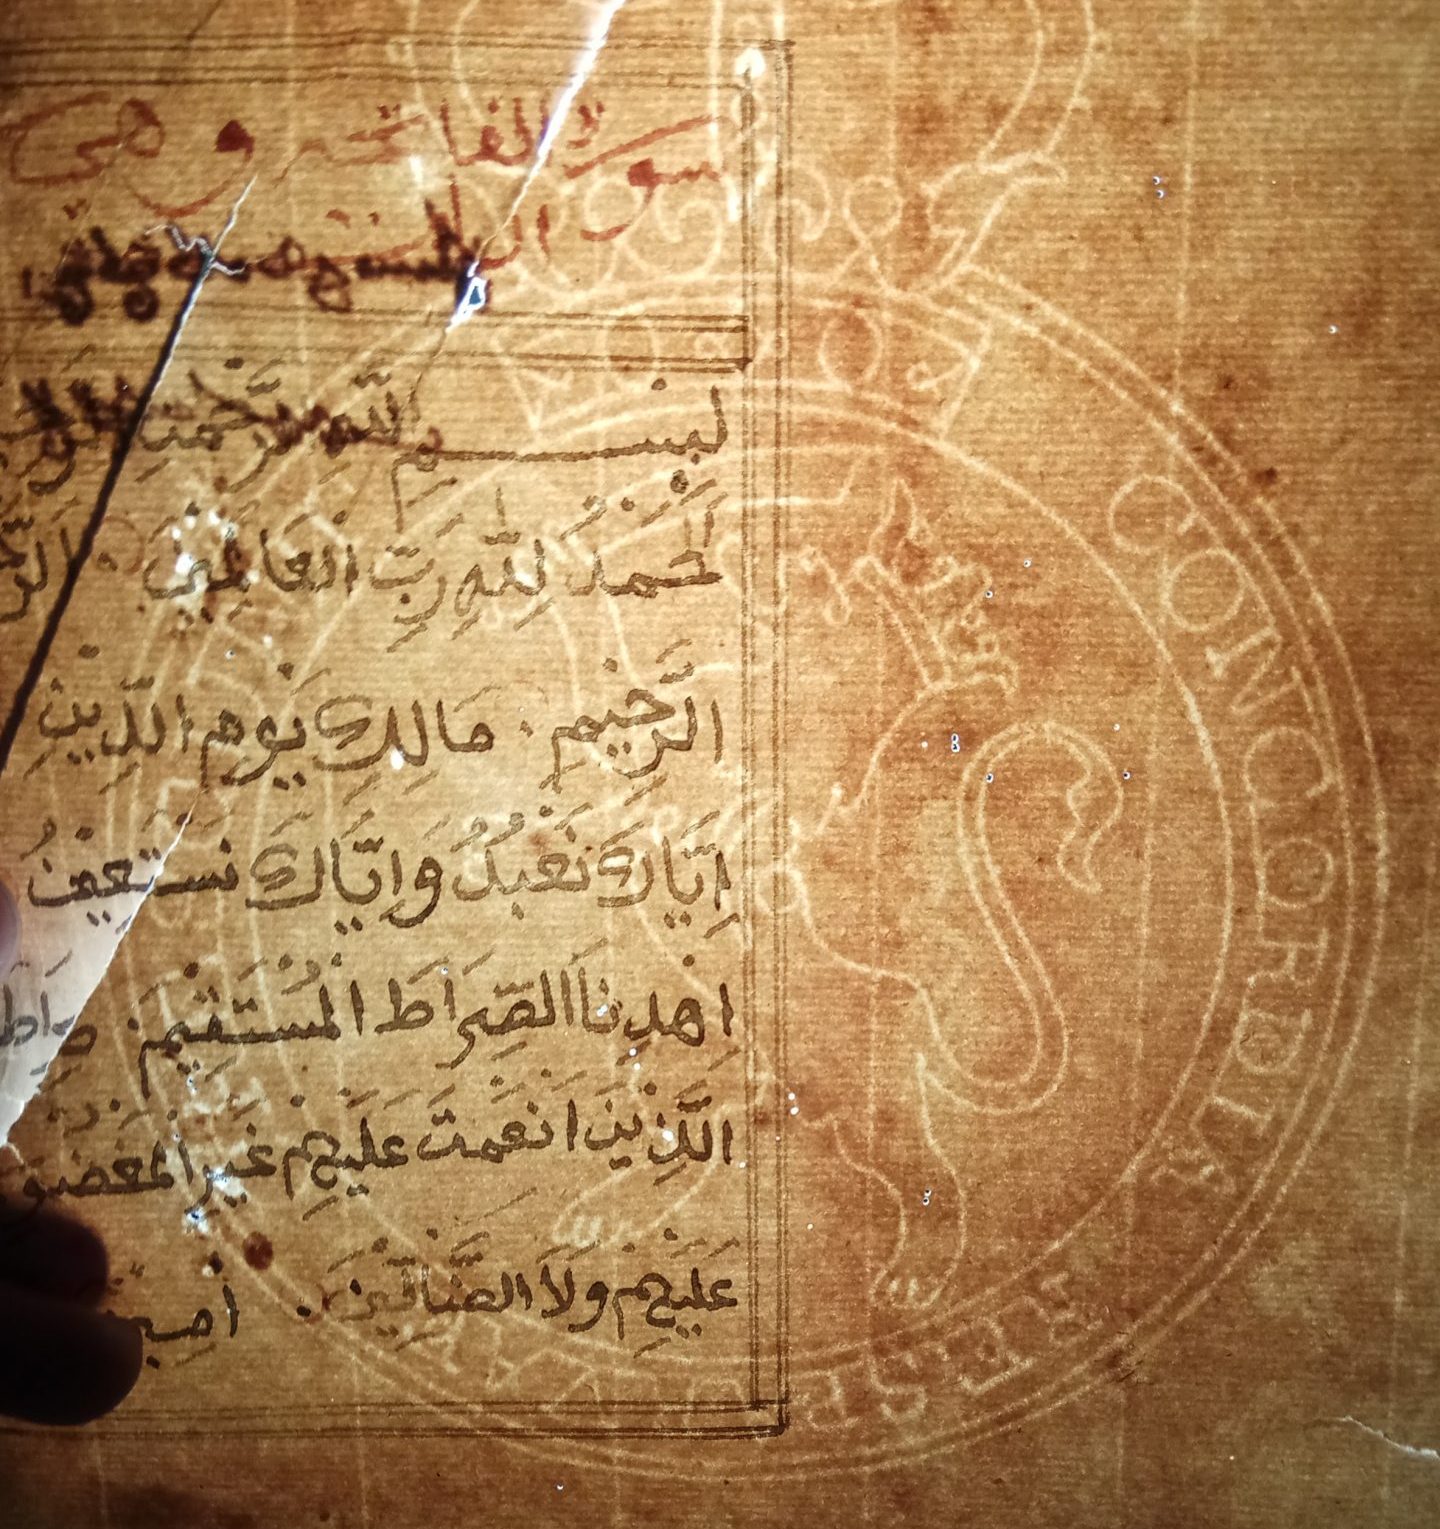 سورة الفاتحة وهي
بِسْــــمِ اللَّهِ الرَّحْمَنِ
اَلْحَمْدُ لِلَّهِ رَبِّ الْعَالَمِينَ .
الرَّحِيمِ . مَالِكِ يَوْمِ الدِّينِ
اِيَّاكَ نَعْبُدُ وَاِيَّاكَ نَسْتَعِينُ
اِهْدِنَا الصِّرَاطَ الْمُسْتَقِيمَ . صِرَاطَ
الَّذِينَ اَنْعَمْتَ عَلَيْهِمْ غَيْرِ الْمَغْضُو
عَلَيْهِمْ وَلَا الضَّالِّينَ .
CONCORDIA
RES PARVAE